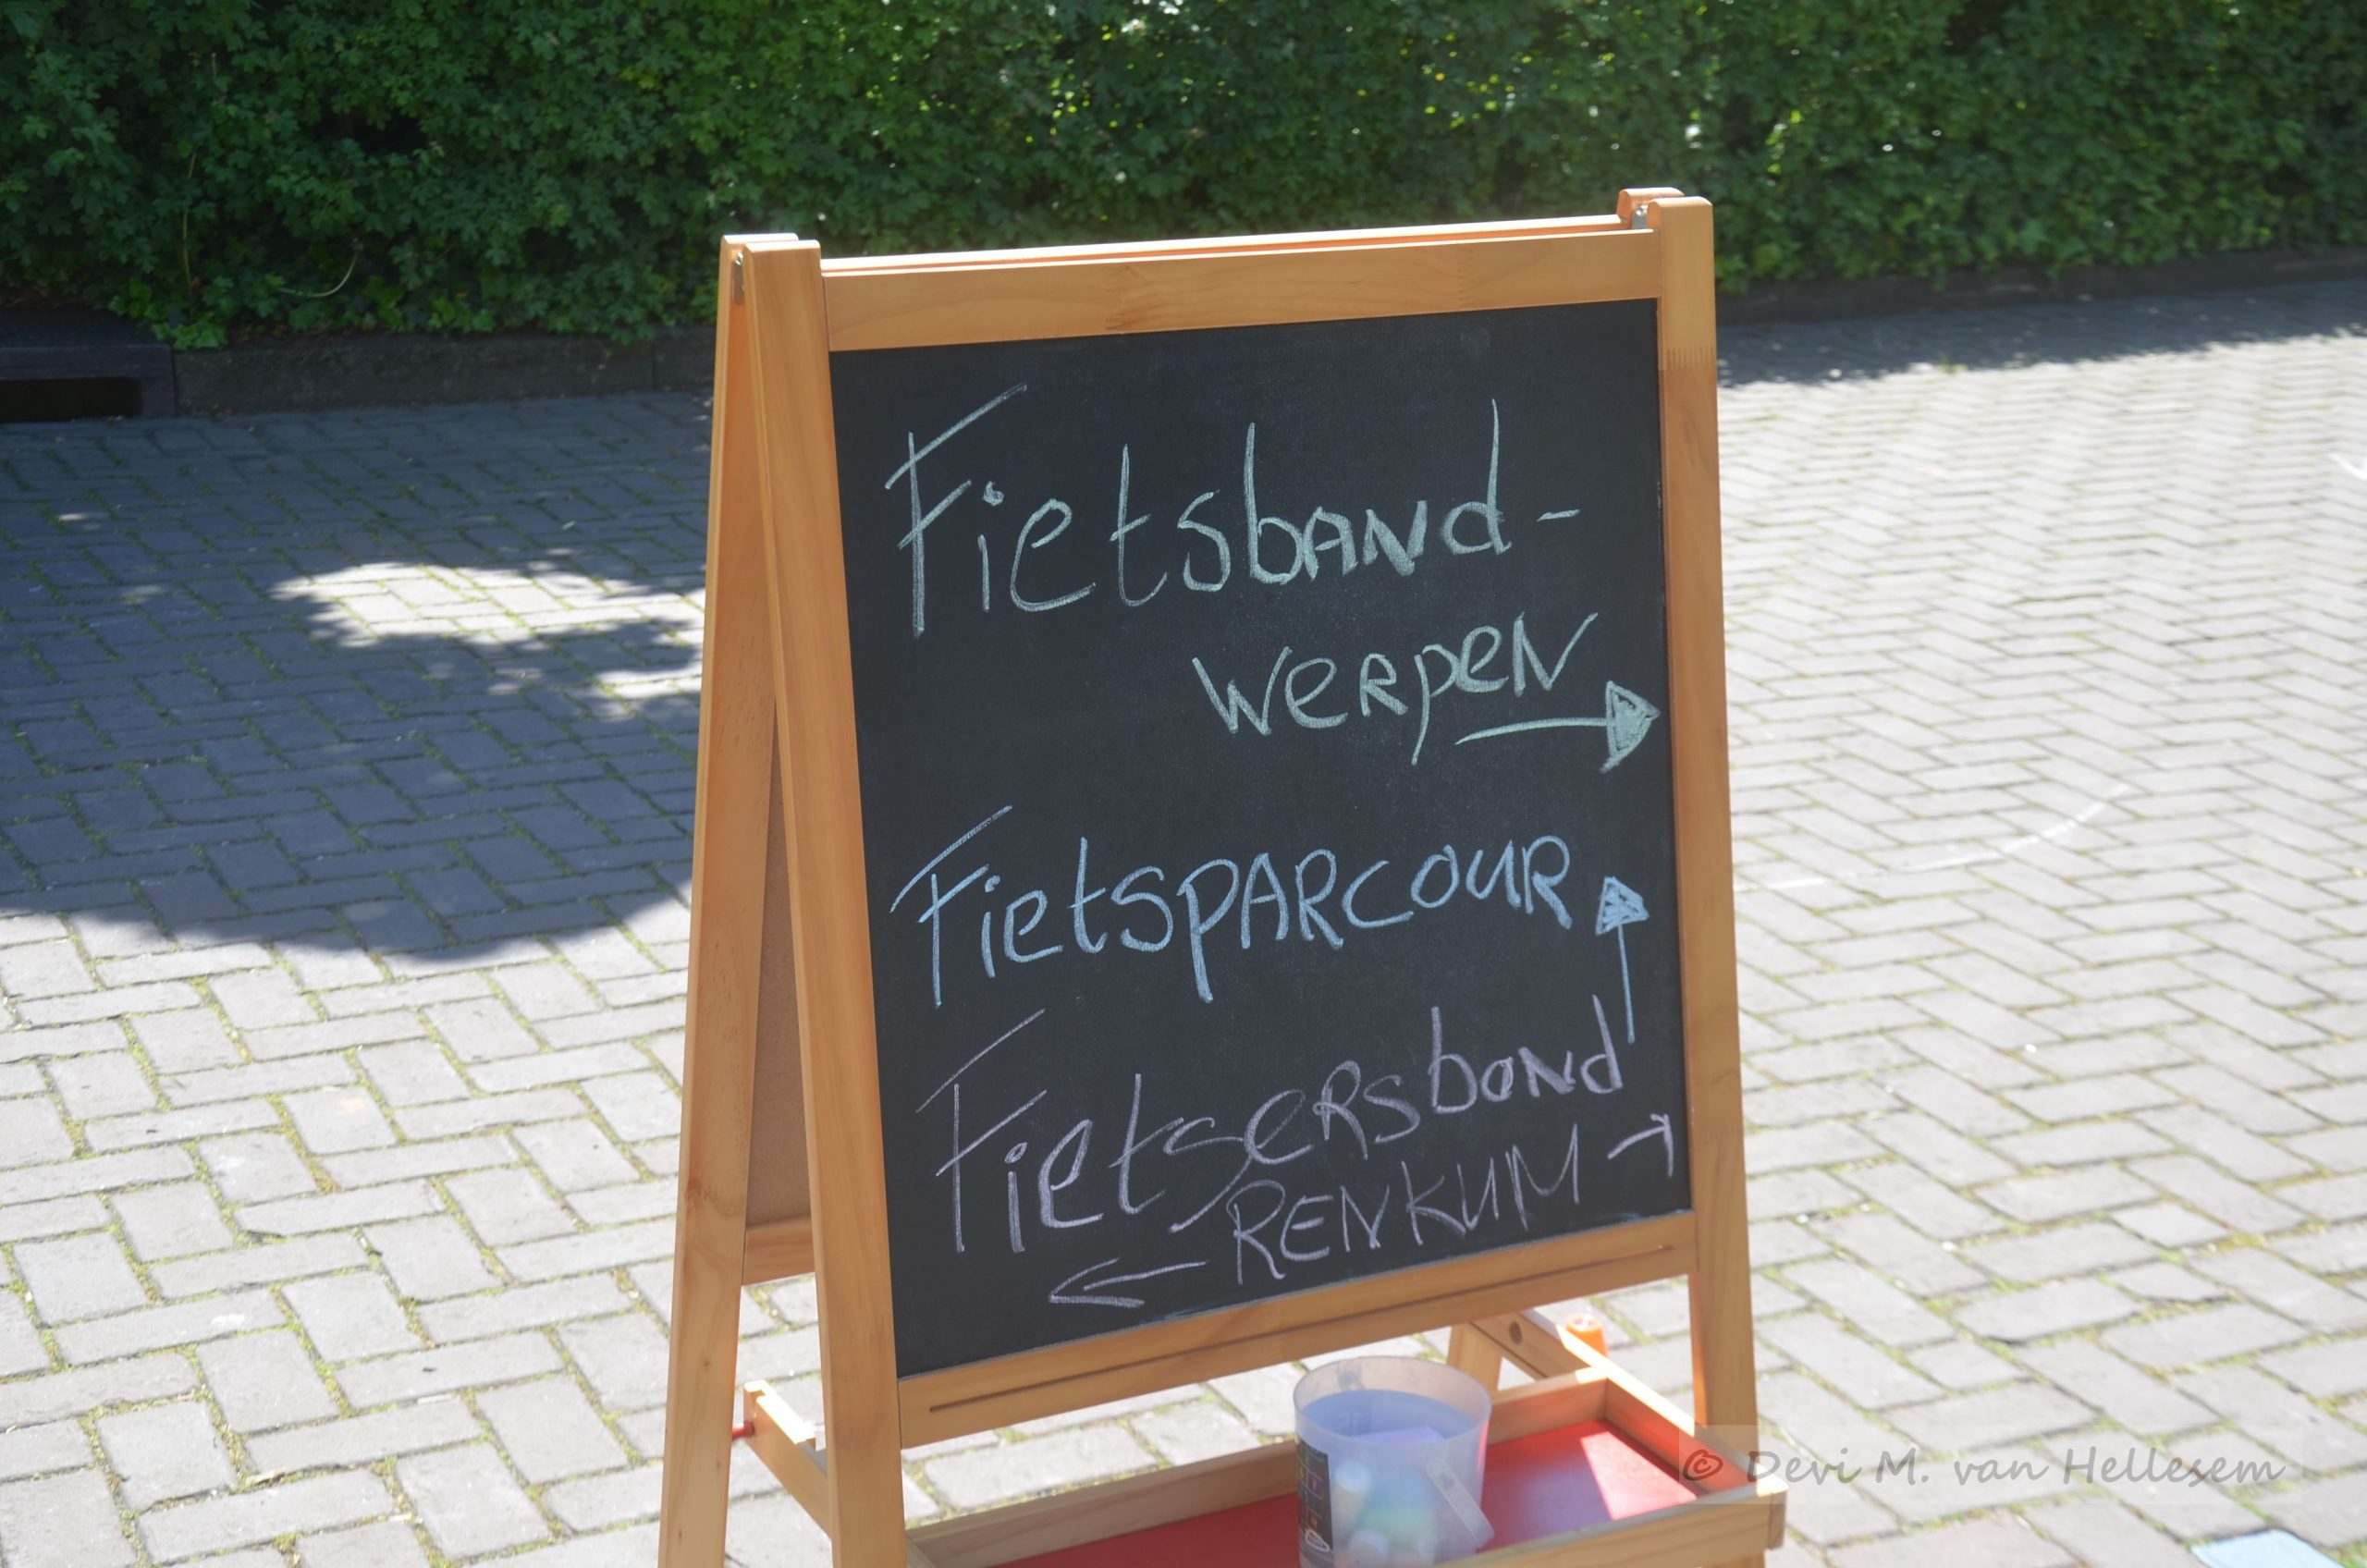 Fietsband-
werpen →
Fietsparcour ↑
Fietsersbond
← RENKUM →
© Devi M. van Hellesem